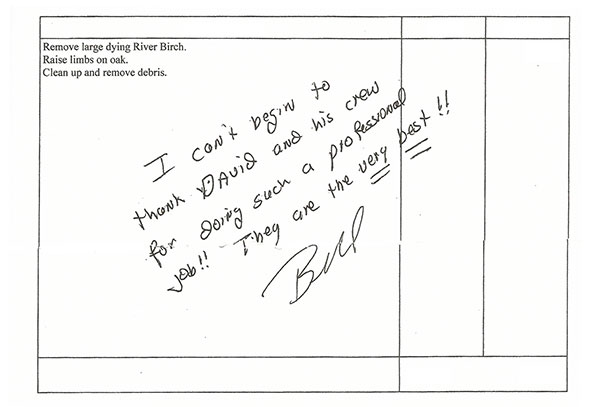 Remove large dying River Birch.
Raise limbs on oak.
Clean up and remove debris.
I can't begin to
thank DAviD and his crew
for doing such a professional
job!! They are the very best!!